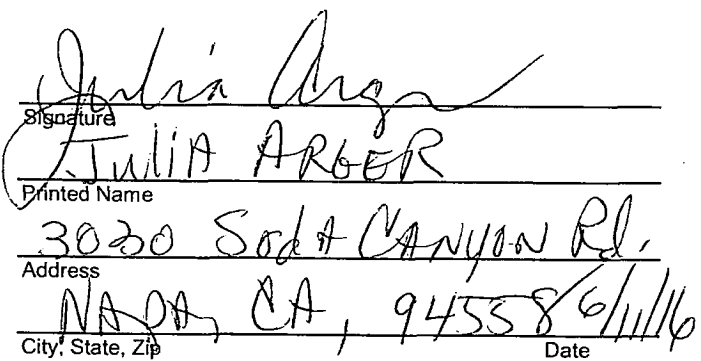 Julia Arger
Signature
Julia ARGER
Printed Name
3030 Soda CANYON Rd.
Address
NAPA, CA, 94558 6/11/16
City, State, Zip Date